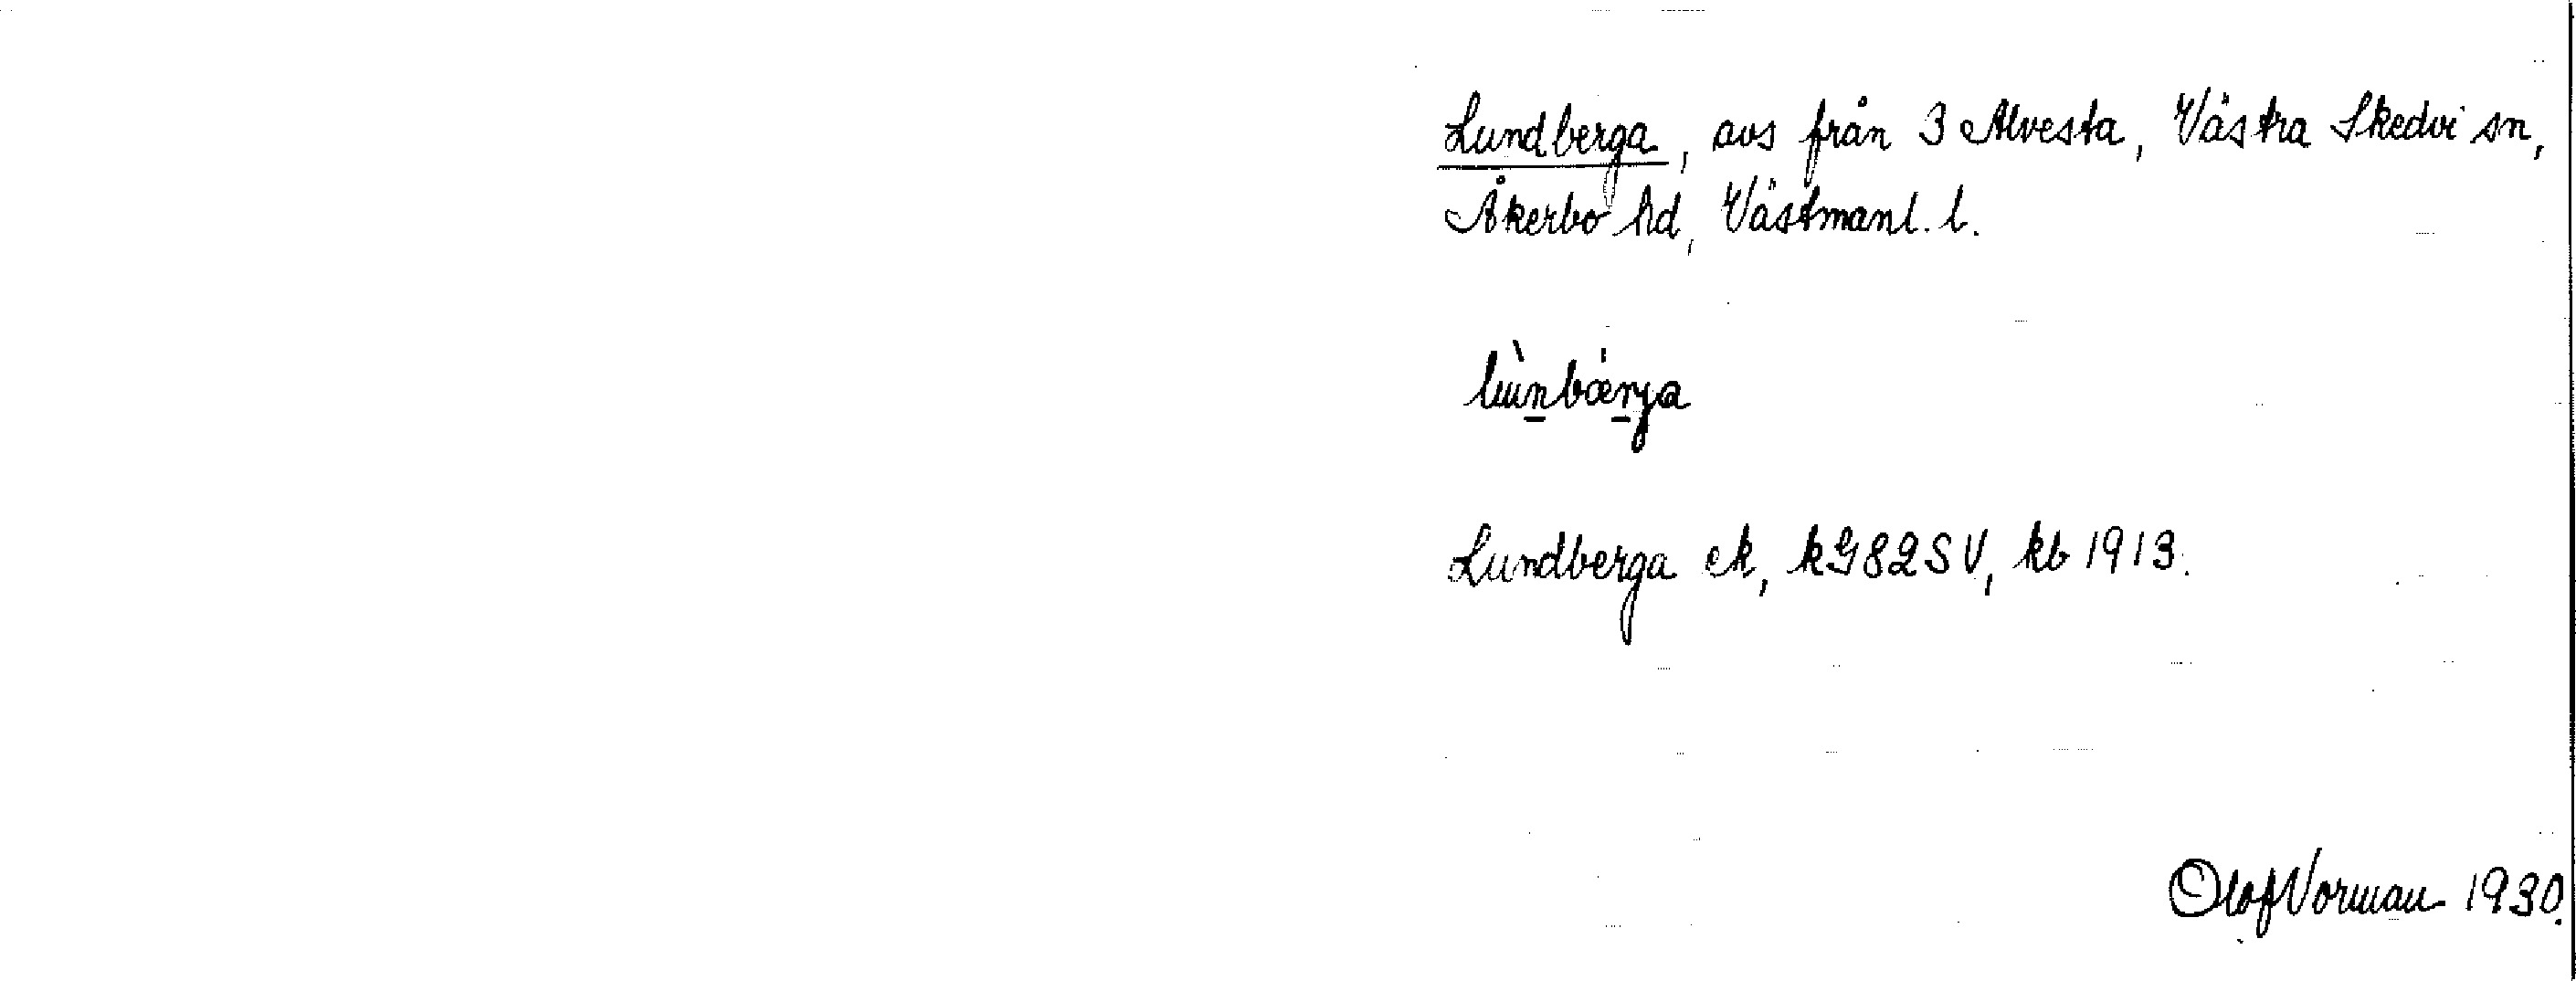 Lundberga, avs från 3 Alvesta, Västra Skedvi sn,
Åkerbo hd, Västmanl. l.
Lundberga ek, kG82SV, kb 1913.
Olof Vorman 1930.